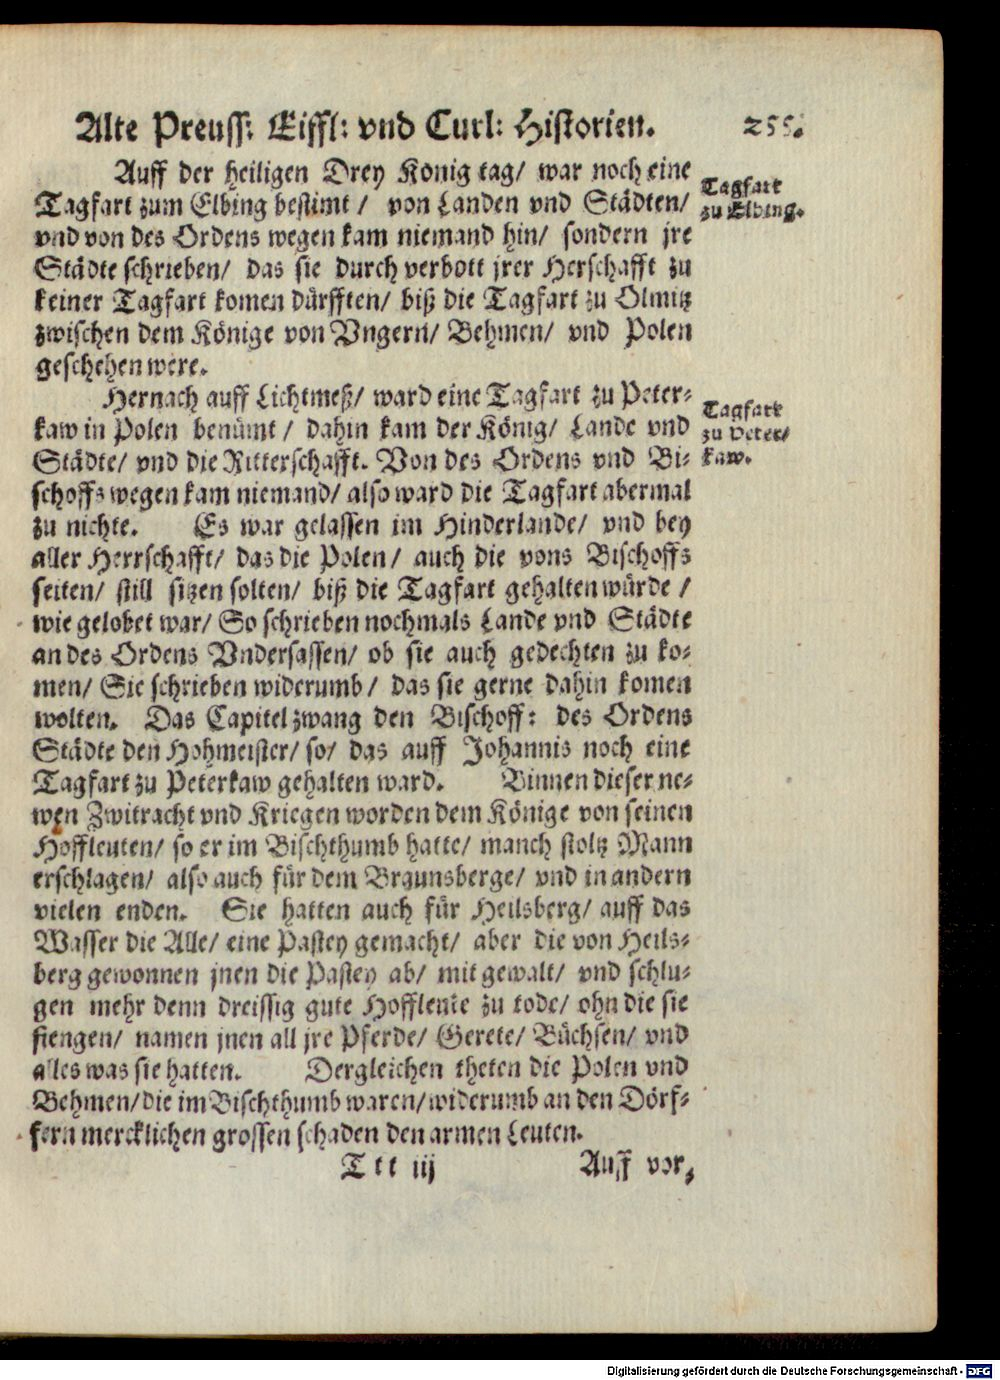 Alte Preuss: Liffl: vnd Curl: Historien. 255.
Auff der heiligen Drey König tag/ war noch eine
Tagfart zum Elbing bestimt / von Landen vnd Städten/
vnd von des Ordens wegen kam niemand hin/ sondern jre
Städte schrieben/ das sie durch verbott jrer Herschafft zu
keiner Tagfart komen dürfften/ biß die Tagfart zu Olmitz
zwischen dem Könige von Vngern/ Behmen/ vnd Polen
geschehen were.
Tagfart
zu Elbing.
Hernach auff Lichtmeß/ ward eine Tagfart zu Peter⸗
kaw in Polen benümt / dahin kam der König/ Lande vnd
Städte/ vnd die Ritterschafft. Von des Ordens vnd Bi⸗
schoffs wegen kam niemand/ also ward die Tagfart abermal
zu nichte. Es war gelassen im Hinderlande/ vnd bey
aller Herrschafft/ das die Polen/ auch die vons Bischoffs
seiten/ still sitzen solten/ biß die Tagfart gehalten würde /
wie gelobet war/ So schrieben nochmals Lande vnd Städte
an des Ordens Vndersassen/ ob sie auch gedechten zu ko⸗
men/ Sie schrieben widerumb / das sie gerne dahin komen
wolten. Das Capitel zwang den Bischoff: des Ordens
Städte den Hohmeister/ so/ das auff Johannis noch eine
Tagfart zu Peterkaw gehalten ward. Binnen dieser ne⸗
wen Zwitracht vnd Kriegen worden dem Könige von seinen
Hoffleuten/ so er im Bischthumb hatte/ manch stoltz Mann
erschlagen/ also auch für dem Braunsberge/ vnd in andern
vielen enden. Sie hatten auch für Heilsberg/ auff das
Wasser die Alle/ eine Pastey gemacht/ aber die von Heils⸗
berg gewonnen jnen die Pastey ab/ mit gewalt/ vnd schlu⸗
gen mehr denn dreissig gute Hoffleute zu tode/ ohn die sie
fiengen/ namen jnen all jre Pferde/ Gerete/ Büchsen/ vnd
alles was sie hatten. Dergleichen theten die Polen vnd
Behmen/ die im Bischthumb waren/ widerumb an den Dörf⸗
fern mercklichen grossen schaden den armen Leuten.
Tagfart
zu Peter/
kaw.
Ttt iij Auff vor⸗
Digitalisierung gefördert durch die Deutsche Forschungsgemeinschaft - DFG